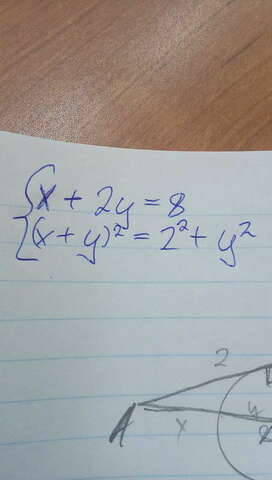 x + 2y = 8
(x + y)² = 2² + y²
2
A
x
y